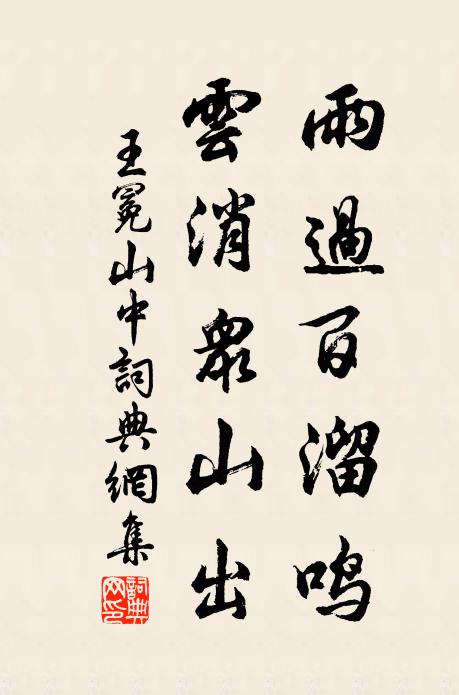 雨過百溜鳴
雲消衆山出
王冕山中詞典網集
詞典網印